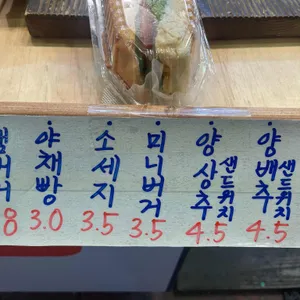 야채빵
3.0
소세지
3.5
미니버거
3.5
양상추
샌드위치
4.5
양배추
샌드위치
4.5